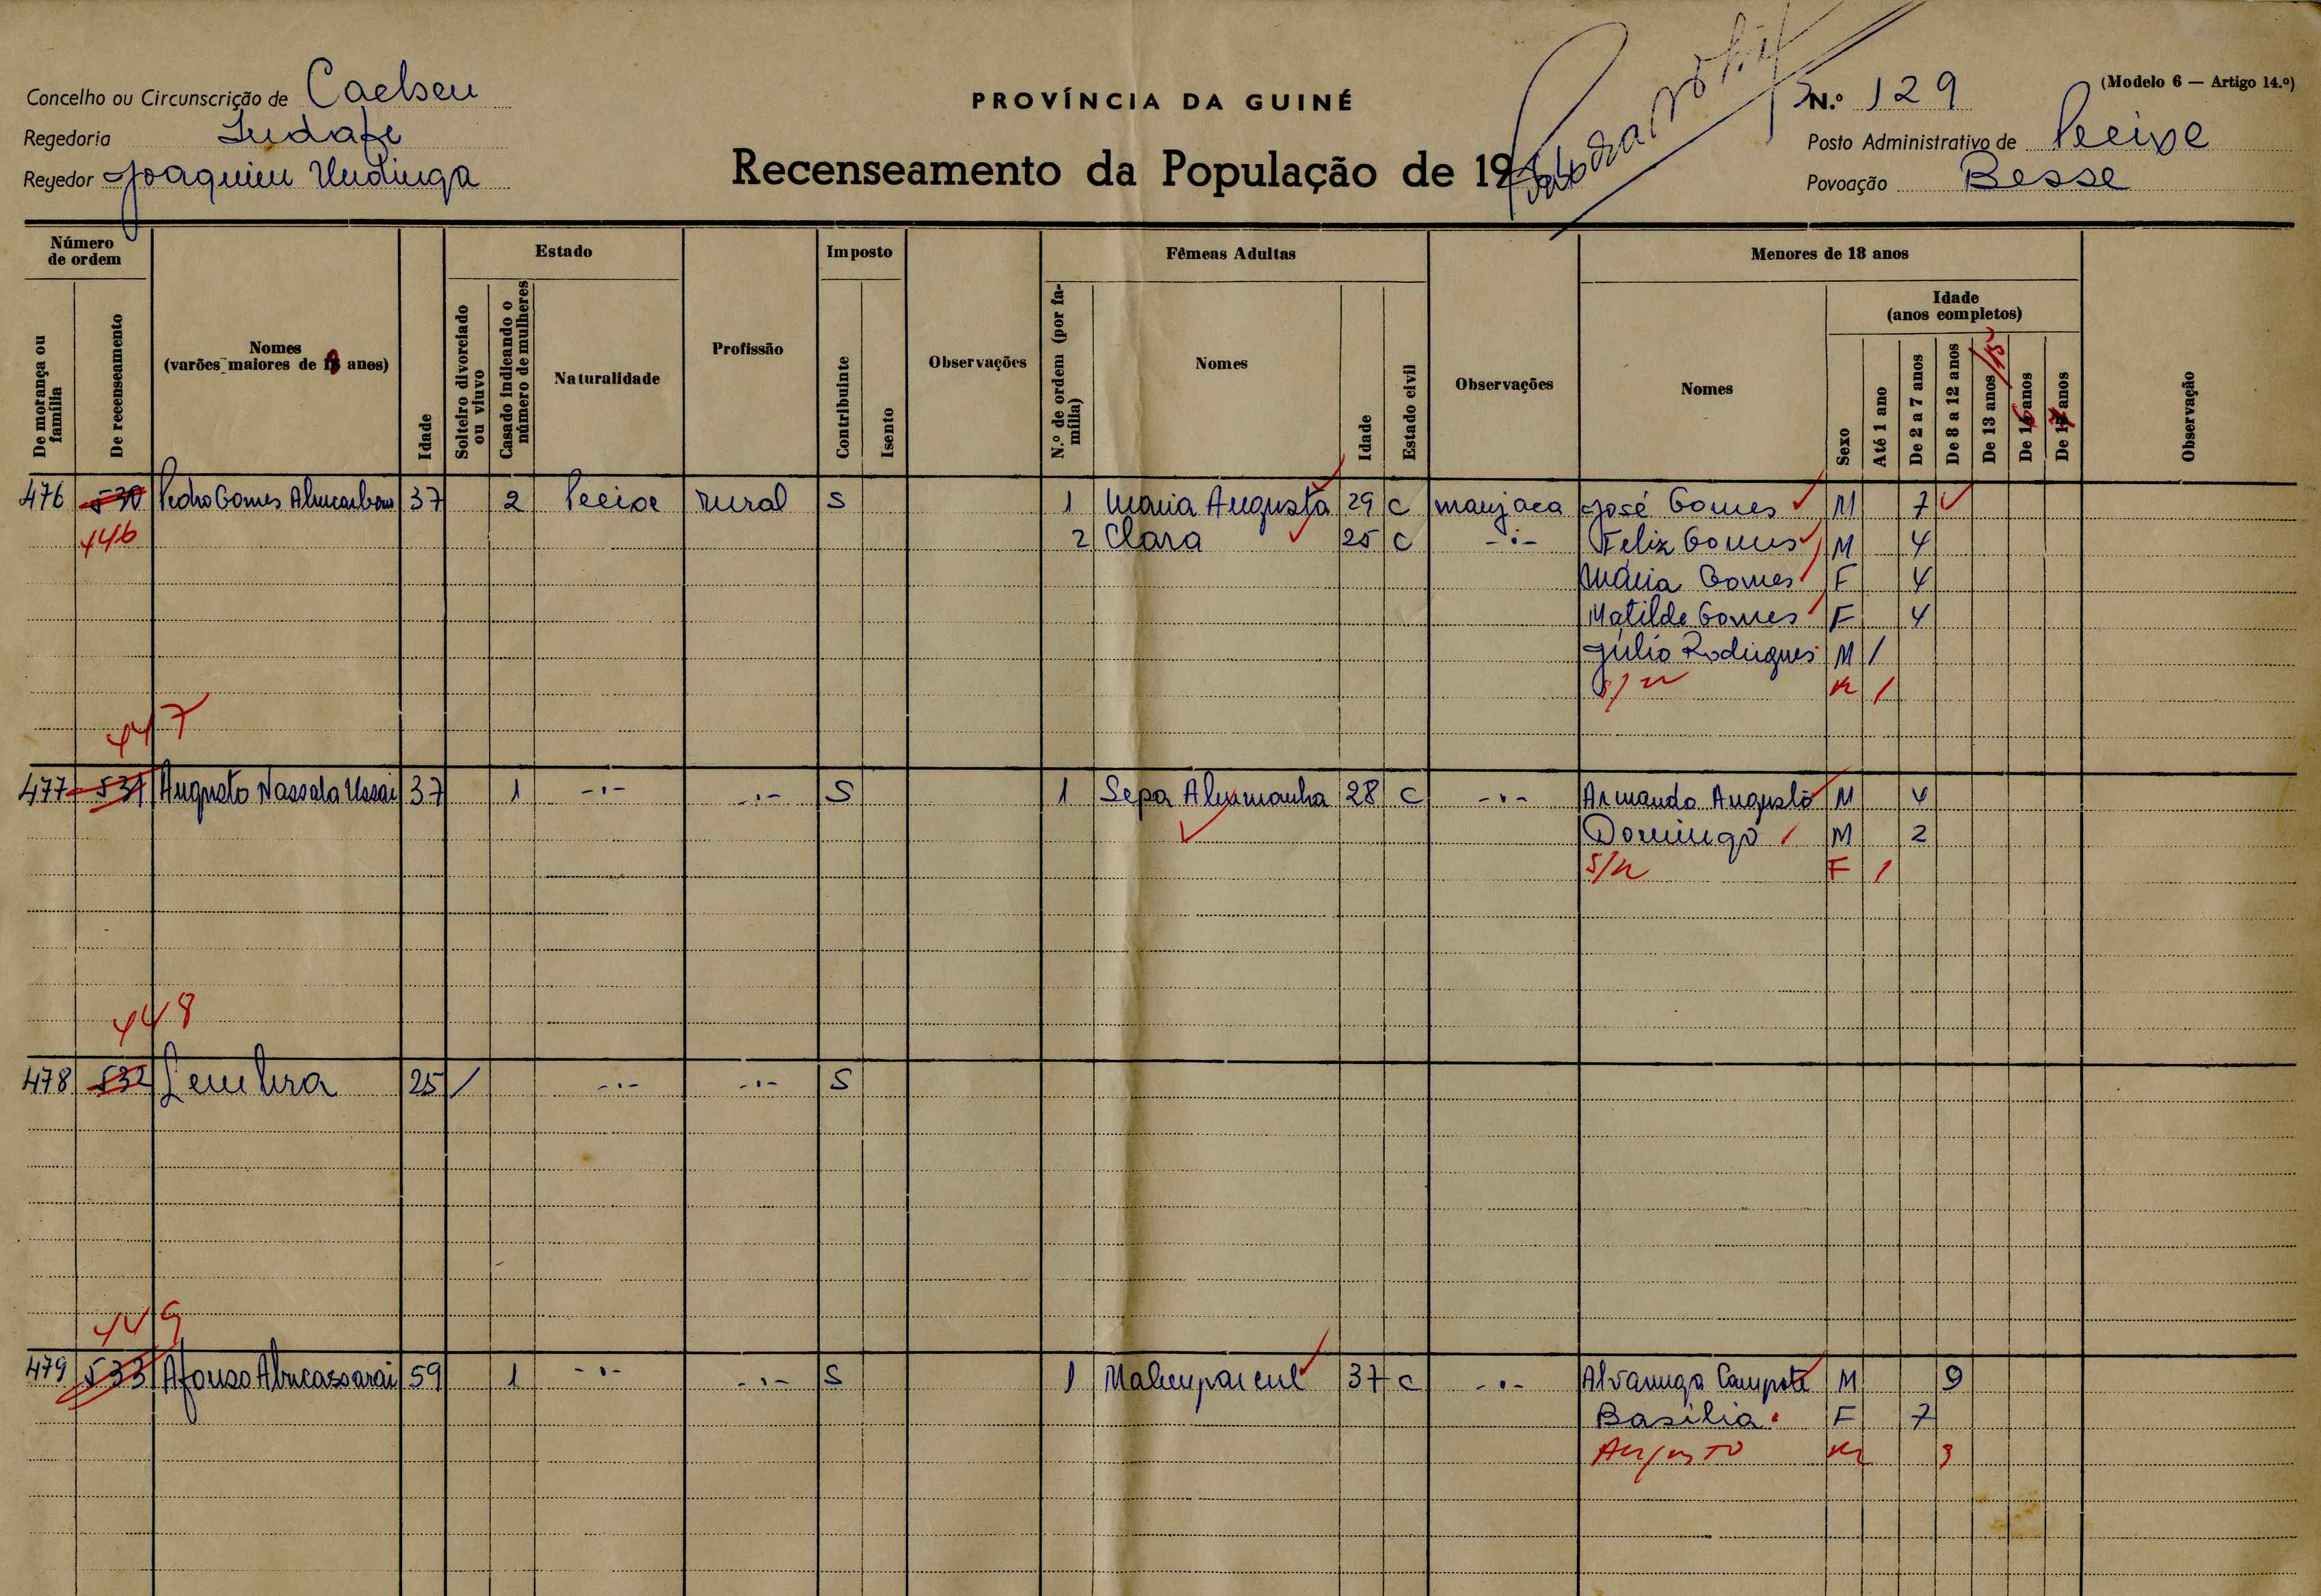 Concelho ou Circunscrição de Caelseu
PROVÍNCIA DA GUINÉ
N.º 129
(Modelo 6 — Artigo 14.º)
Regedoria Indafe
Posto Administrativo de Peeixe
Regedor Joaquim Undinga
Recenseamento da População de 19
Povoação Besse
Número de ordem
De morança ou família
De recenseamento
Nomes
(varões maiores de 18 anos)
Idade
Estado
Solteiro divorciado ou viuvo
Casado indicando o número de mulheres
Naturalidade
Profissão
Imposto
Contribuinte
Isento
Observações
Fêmeas Adultas
N.º de ordem (por família)
Nomes
Idade
Estado civil
Observações
Menores de 18 anos
Nomes
Idade
(anos completos)
Sexo
Até 1 ano
De 2 a 7 anos
De 8 a 12 anos
De 13 anos /15
De 16 anos
De 17 anos
Observação
476 530 Pedro Gomes 37 2 Peeixe rural S 1 Maria Augusta 29 C manjaca José Gomes M 7
446 2 Clara 25 C -·- Feliz Gomes M 4
Maria Gomes F 4
Matilde Gomes F 4
Júlio Rodrigues M /
s/n M /
447
477 531 Augusto Nassala Ussai 37 1 -·- -·- S 1 Sepa Alumanha 28 C -·- Armando Augusto M 4
Domingo M 2
S/n F /
448
478 532 Lembra 25 / -·- -·- S
449
479 533 Afonso Abucassarai 59 1 -·- -·- S 1 37 C -·- Alvanuga Campote M 9
Basilia F 7
Augusto M 9